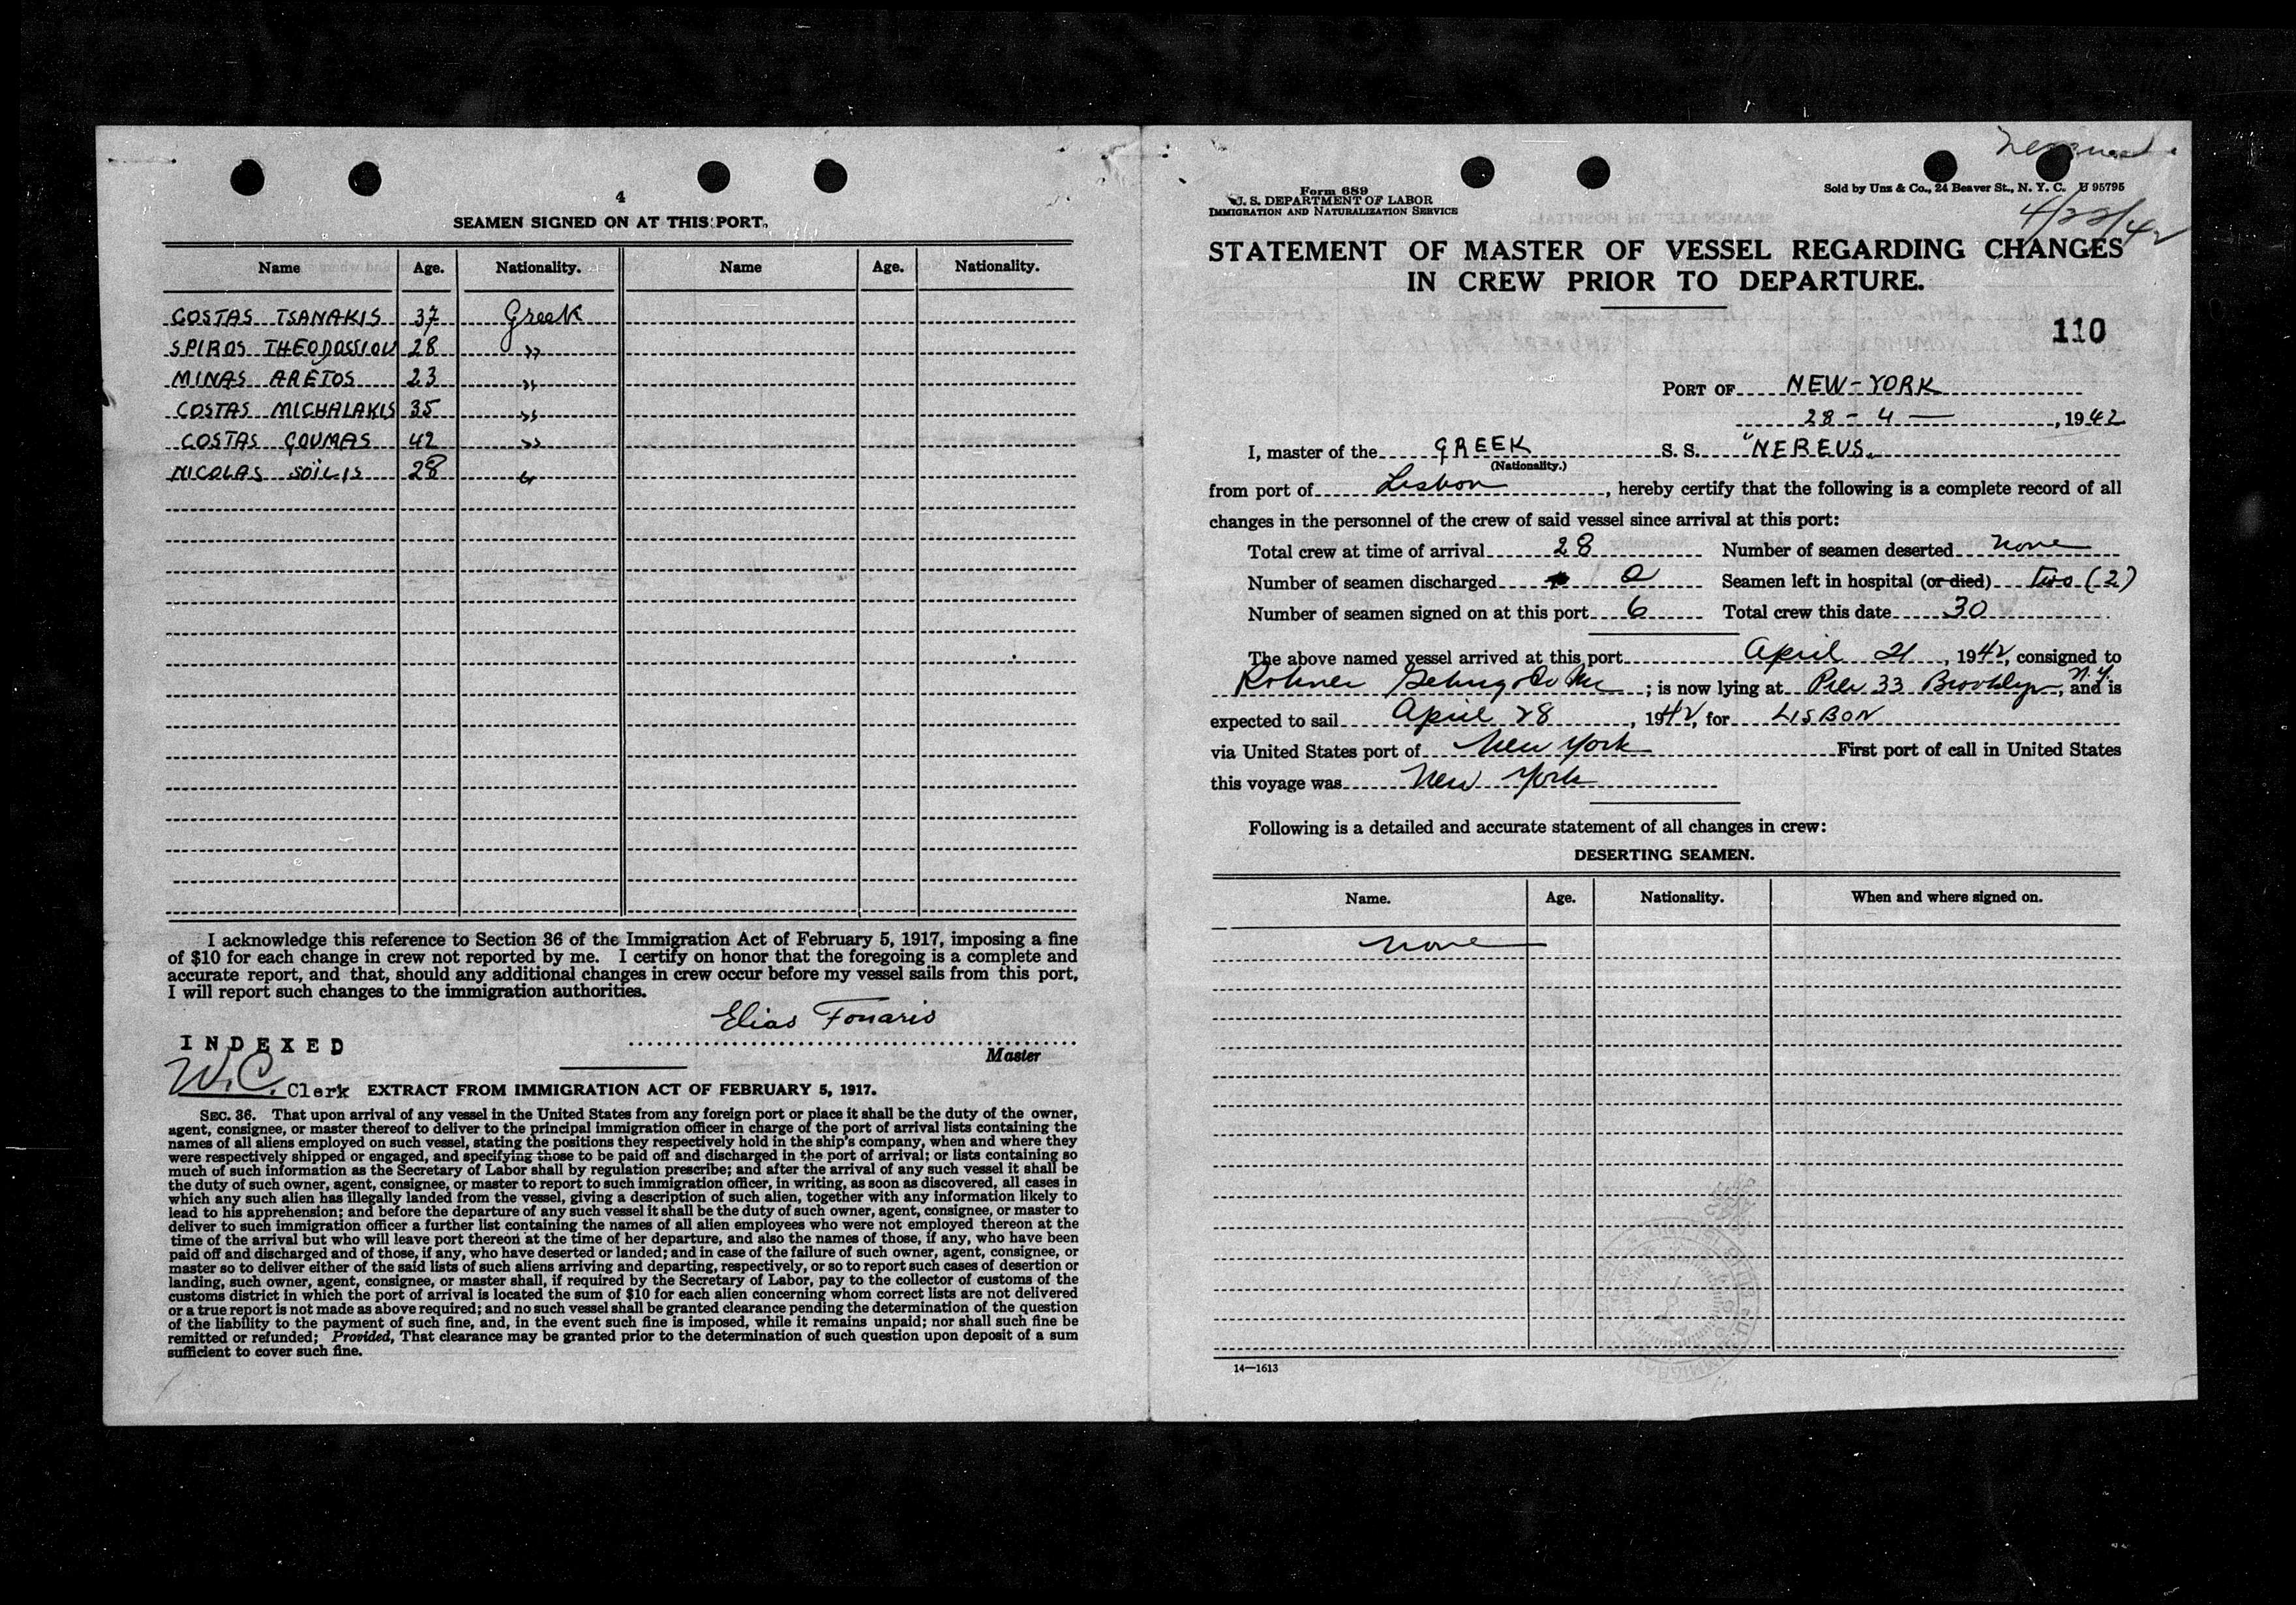 4
SEAMEN SIGNED ON AT THIS PORT.
Name Age. Nationality. Name Age. Nationality.
COSTAS TSANAKIS 37 Greek
SPIROS THEODOSSIOU 28 "
MINAS ARETOS 23 "
COSTAS MICHALAKIS 35 "
COSTAS GOUMAS 42 "
NICOLAS SOÏLIS 28 "
I acknowledge this reference to Section 36 of the Immigration Act of February 5, 1917, imposing a fine
of $10 for each change in crew not reported by me. I certify on honor that the foregoing is a complete and
accurate report, and that, should any additional changes in crew occur before my vessel sails from this port,
I will report such changes to the immigration authorities.
Elias Fonaris
Master
INDEXED
W.C. Clerk
EXTRACT FROM IMMIGRATION ACT OF FEBRUARY 5, 1917.
SEC. 36. That upon arrival of any vessel in the United States from any foreign port or place it shall be the duty of the owner,
agent, consignee, or master thereof to deliver to the principal immigration officer in charge of the port of arrival lists containing the
names of all aliens employed on such vessel, stating the positions they respectively hold in the ship's company, when and where they
were respectively shipped or engaged, and specifying those to be paid off and discharged in the port of arrival; or lists containing so
much of such information as the Secretary of Labor shall by regulation prescribe; and after the arrival of any such vessel it shall be
the duty of such owner, agent, consignee, or master to report to such immigration officer, in writing, as soon as discovered, all cases in
which any such alien has illegally landed from the vessel, giving a description of such alien, together with any information likely to
lead to his apprehension; and before the departure of any such vessel it shall be the duty of such owner, agent, consignee, or master to
deliver to such immigration officer a further list containing the names of all alien employees who were not employed thereon at the
time of the arrival but who will leave port thereon at the time of her departure, and also the names of those, if any, who have been
paid off and discharged and of those, if any, who have deserted or landed; and in case of the failure of such owner, agent, consignee, or
master so to deliver either of the said lists of such aliens arriving and departing, respectively, or so to report such cases of desertion or
landing, such owner, agent, consignee, or master shall, if required by the Secretary of Labor, pay to the collector of customs of the
customs district in which the port of arrival is located the sum of $10 for each alien concerning whom correct lists are not delivered
or a true report is not made as above required; and no such vessel shall be granted clearance pending the determination of the question
of the liability to the payment of such fine, and, in the event such fine is imposed, while it remains unpaid; nor shall such fine be
remitted or refunded; Provided, That clearance may be granted prior to the determination of such question upon deposit of a sum
sufficient to cover such fine.
Form 689
U. S. DEPARTMENT OF LABOR
IMMIGRATION AND NATURALIZATION SERVICE
Sold by Unz & Co., 24 Beaver St., N. Y. C. U 95795
STATEMENT OF MASTER OF VESSEL REGARDING CHANGES
IN CREW PRIOR TO DEPARTURE.
110
PORT OF NEW-YORK
28 - 4 — , 1942
I, master of the GREEK S. S. "NEREUS"
(Nationality.)
from port of Lisbon , hereby certify that the following is a complete record of all
changes in the personnel of the crew of said vessel since arrival at this port:
Total crew at time of arrival 28 Number of seamen deserted none
Number of seamen discharged 0 Seamen left in hospital (or died) Two (2)
Number of seamen signed on at this port 6 Total crew this date 30
The above named vessel arrived at this port April 21 , 1942, consigned to
Rohner Gehrig Co Inc ; is now lying at Pier 33 Brooklyn, N.Y. and is
expected to sail April 28 , 1942, for LISBON
via United States port of New York First port of call in United States
this voyage was New York
Following is a detailed and accurate statement of all changes in crew:
DESERTING SEAMEN.
Name. Age. Nationality. When and where signed on.
none
14—1613